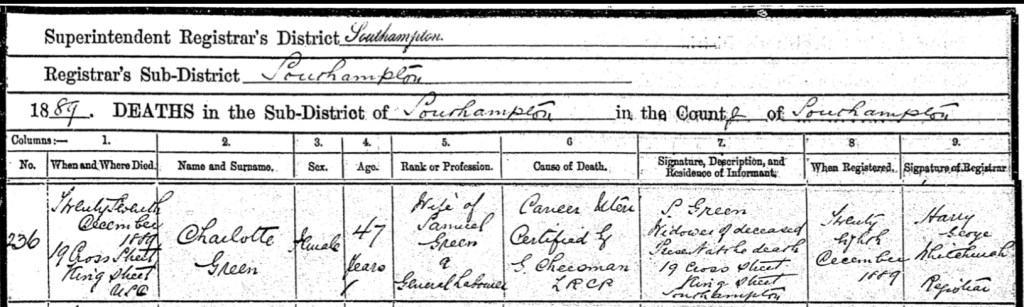 Superintendent Registrar's District Southampton.
Registrar's Sub-District Southampton
1889. DEATHS in the Sub-District of Southampton in the County of Southampton
Columns:— 1. 2. 3. 4. 5. 6 7. 8 9.
No. When and Where Died. Name and Surname. Sex. Age. Rank or Profession. Cause of Death. Signature, Description, and Residence of Informant. When Registered. Signature of Registrar
236
Twenty
December
1889
19 Cross Street
King Street
Charlotte
Green
Female
47
Years
Wife of
Samuel
Green
a
General Labourer
Cancer Uteri
Certified by
G. Cheesman
LRCP
S. Green
Widower of deceased
Present at the death
19 Cross Street
King Street
Southampton
Twenty
Eighth
December
1889
Harry
George
Whitchurch
Registrar